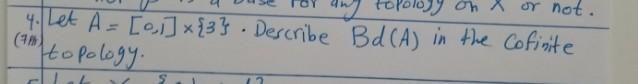 a base for any topology on X or not.
4. Let A = [0,1] × {3}. Describe Bd(A) in the Cofinite
topology.